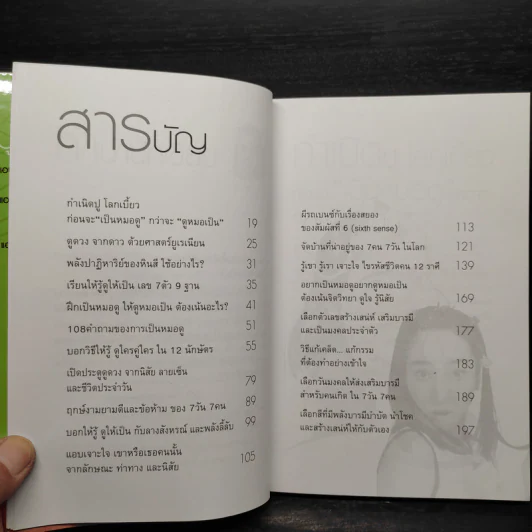 สารบัญ
กำเนิดปู โลกเบี้ยว
ก่อนจะ"เป็นหมอดู" กว่าจะ "ดูหมอเป็น" 19
ดูดวง จากดาว ด้วยศาสตร์ยูเรเนียน 25
พลังปาฏิหาริย์ของหินสี ใช้อย่างไร? 31
เรียนให้รู้ดูให้เป็น เลข 7ตัว 9 ฐาน 35
ฝึกเป็นหมอดู ให้ดูหมอเป็น ต้องเน้นอะไร? 41
108คำถามของการเป็นหมอดู 51
บอกวิธีให้รู้ ดูใครคู่ใคร ใน 12 นักษัตร 55
เปิดประตูดูดวง จากนิสัย ลายเซ็น
และชีวิตประจำวัน 79
ฤกษ์งามยามดีและข้อห้าม ของ 7วัน 7คน 89
บอกให้รู้ ดูให้เป็น กับลางสังหรณ์ และพลังลี้ลับ 99
แอบเจาะใจ เขาหรือเธอคนนั้น
จากลักษณะ ท่าทาง และนิสัย 105
ผีรถเบนซ์กับเรื่องสยอง
ของสัมผัสที่ 6 (sixth sense) 113
จัดบ้านที่น่าอยู่ของ 7คน 7วัน ในโลก 121
รู้เขา รู้เรา เจาะใจ ไขรหัสชีวิตคน 12 ราศี 139
อยากเป็นหมอดูอยากดูหมอเป็น
ต้องเน้นจิตวิทยา ดูใจ รู้นิสัย 169
เลือกตัวเลขสร้างเสน่ห์ เสริมบารมี
และเป็นมงคลประจำตัว 177
วิธีแก้เคล็ด... แก้กรรม
ที่ต้องทำอย่างเข้าใจ 183
เลือกวันมงคลให้ส่งเสริมบารมี
สำหรับคนเกิด ใน 7วัน 7คน 189
เลือกสีที่มีพลังบารมีบำบัด นำโชค
และสร้างเสน่ห์ให้กับตัวเอง 197